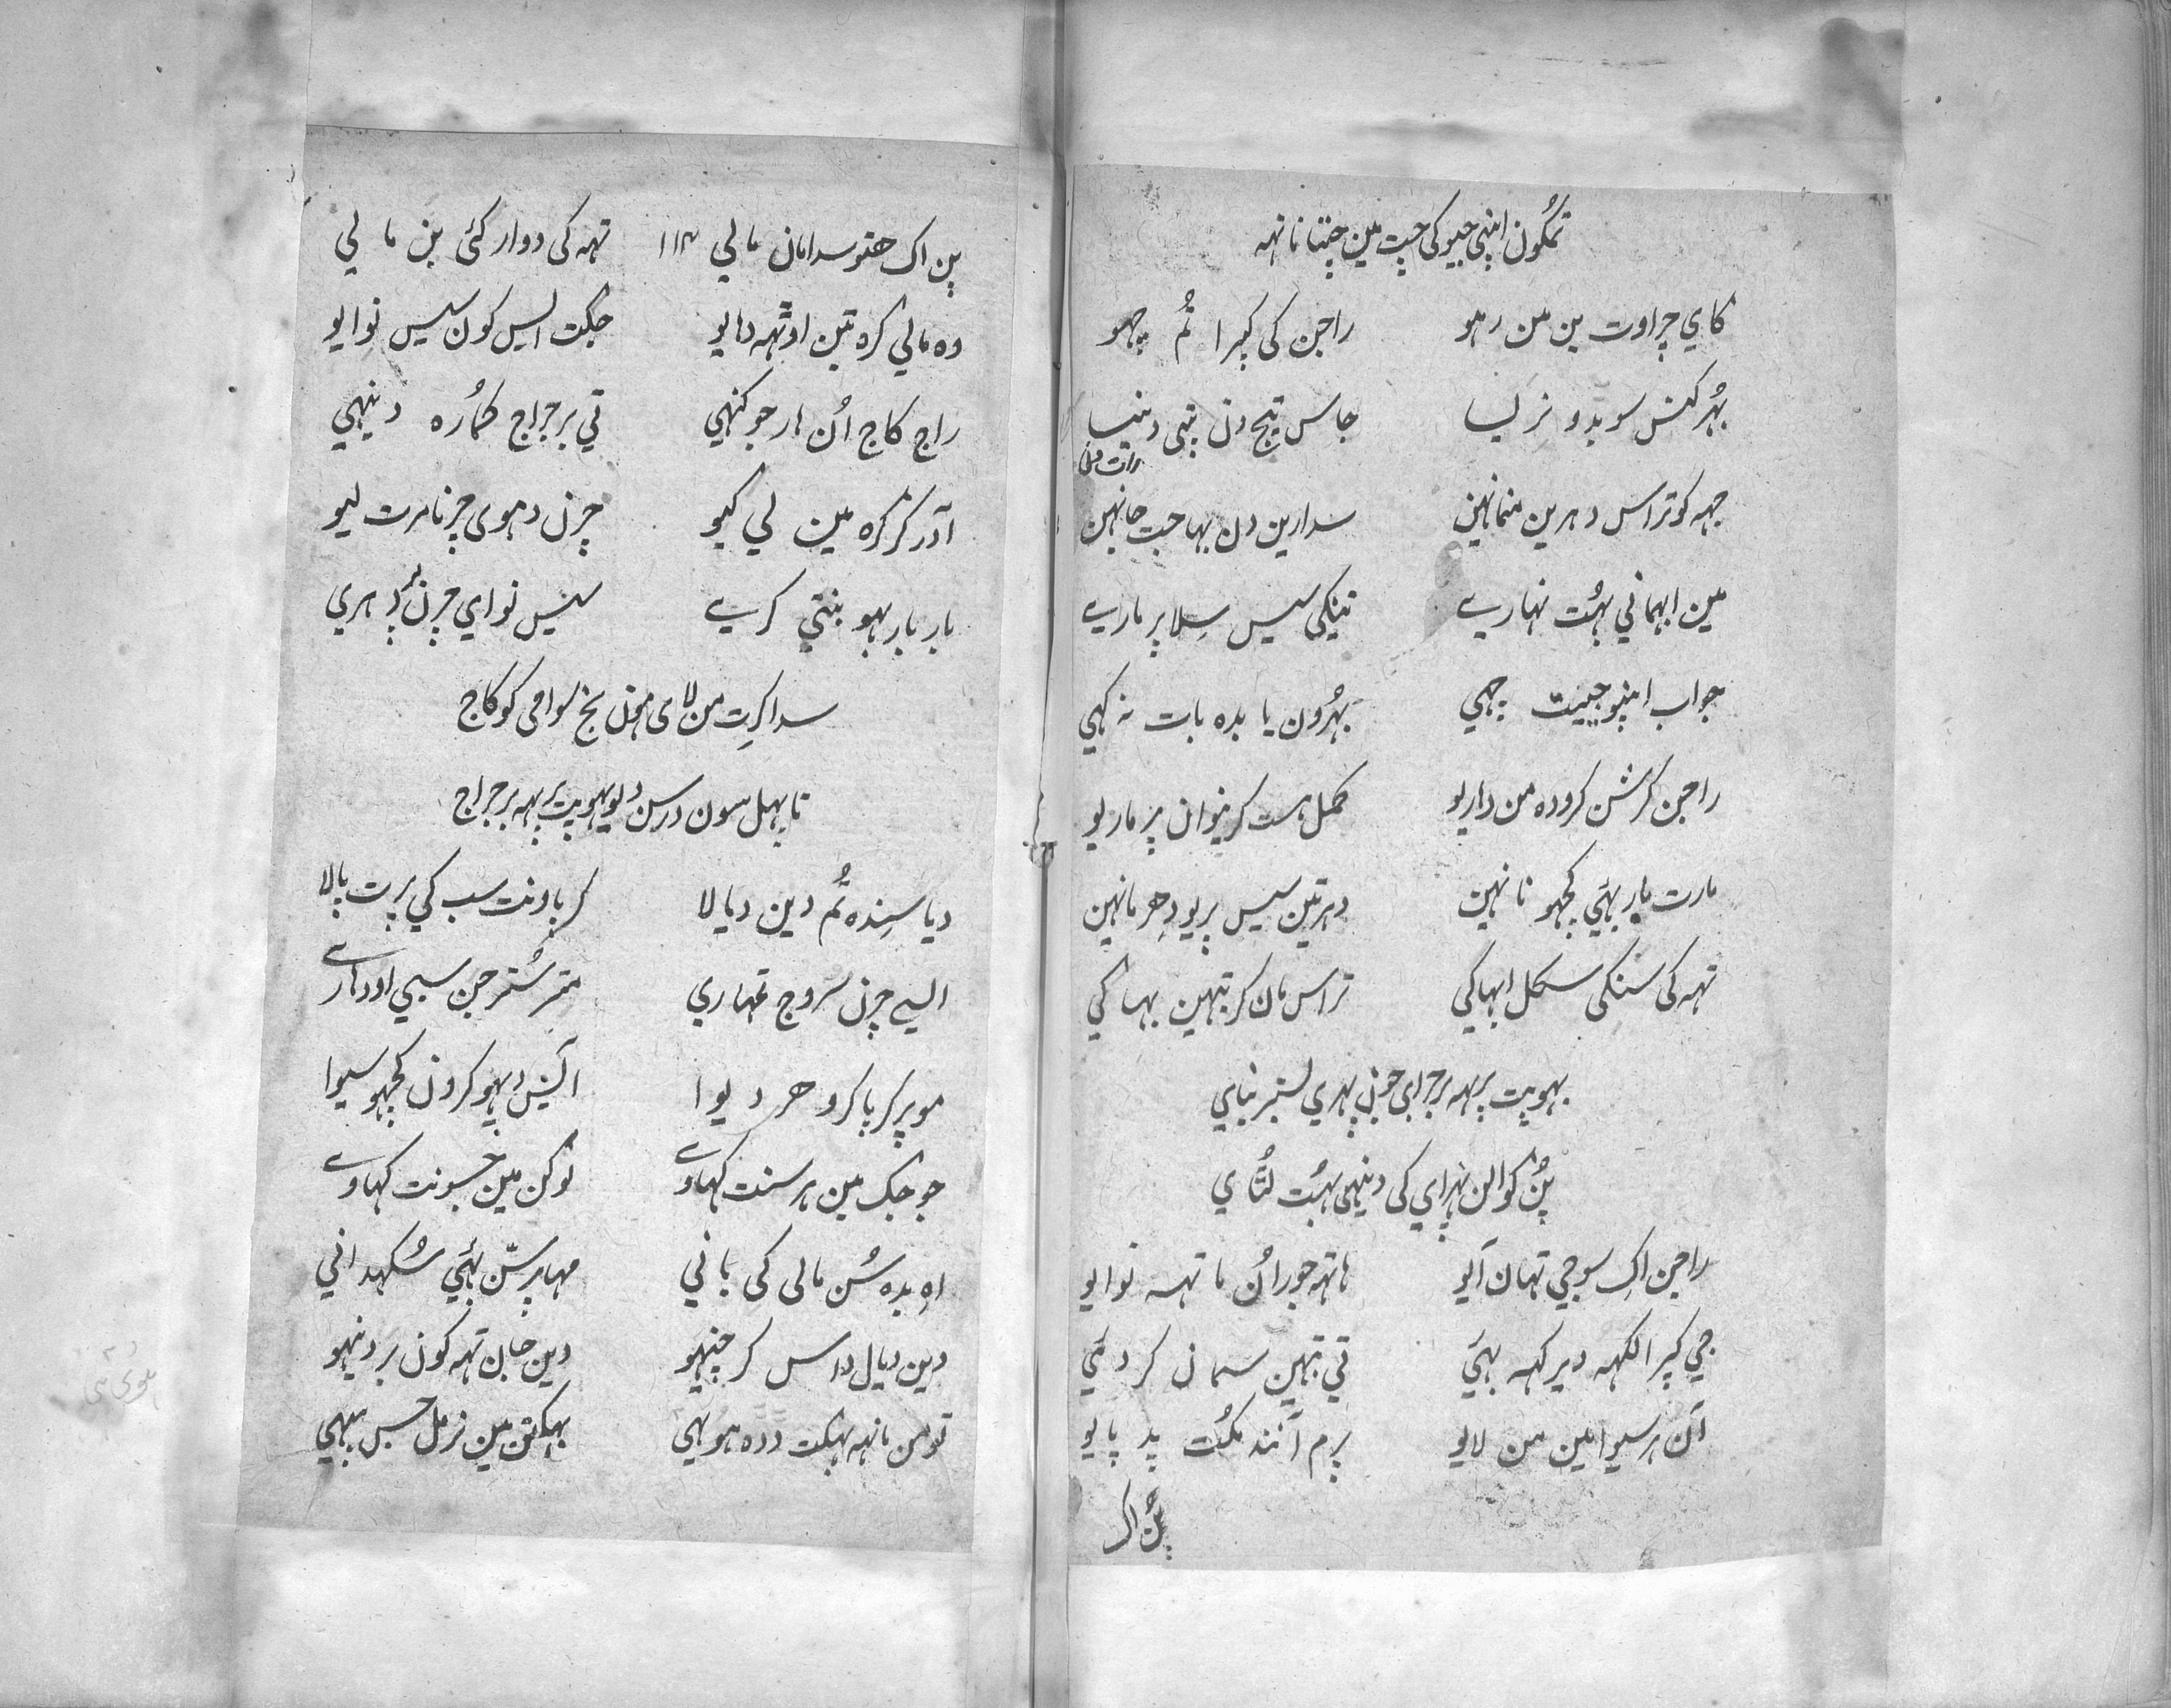 تمکون اپنی جیو کی چت مین چنتا نانہہ
کای چراوت بن من رہو راجن کی کپرا تُم چہو
بُہُر کنس سو بدو نر لیسا جاس تیج دن بتی دنیسا
رات دن
جہہ کو تراس دہرین منمانہین سدا رین دن بہاجت جانہین
مین ابہمانی بہُت نہارے تینکی سیس سِلا پر مارے
جو اب اپنو جیبت چہی بہُرُون یا بدہ بات نہ کہی
راجن کرشن کرودہ من داریو کمل ہست کر نیوان پر ماریو
مارت بار بہئی کچہو نانہین دہر تین سیس پریو دِھر مانہین
تہہ کی سنکی سکل ابہاکی تراس مان کر تبہین بہاکی
بہوپت پرہہ برجراج جون پہری بستر بنای
پُن کوالن پہرای کی دینہی بہُت لُٹای
راجن اکِ سوجی تہان آیو ہاتہہ جور اُن ماتہہ نوایو
جی کپرا لکہہ دیرکہہ بہئی تی تبہین سمان کر دئی
اُن ہر سیوا مین من لایو پرم آنند مُکت پد پایو
پُن اک
پن اک ھتو سدامان مالی ۱۱۴ تہہ کی دوار کئی بن مالی
وہ مالی گرہ تین اوٹہہ دہایو جکت ایس کون سیس نوایو
راج کاج اُن ہار جو کنہی تی برجراج کمارہ دینہی
آدر کر گرہ مین لی کیو چرن دہوی چرنامرت لیو
بار بار بہو بنتی کرے سیس نوای چرن پر دہری
سدا کرِت من لای ہون نج سوامی کو کاج
تا پہل سون درسن دیو بہوپت پرہہ برجراج
دیا سِندہ تُم دین دیالا کرپاونت سب کی پرت پالا
ایسے چرن سروج تمہاری متر سُتر جن سبی اودہارے
موپر کرپا کرو ھر دیوا آیس دیہو کرون کچہو سیوا
جو جک مین ہر سنت کہاوے لوکن مین جسونت کہاوے
اہِ بدہ سُن مالی کی بانی مہا پرسّن بہئی سُکہدانی
دین دیال داس کر چنہیو دین جان تہہ کون بر دینہو
تو من مانہہ بہکت دِرَدہ ہو بہی بہکتن مین نرمل جس بہی